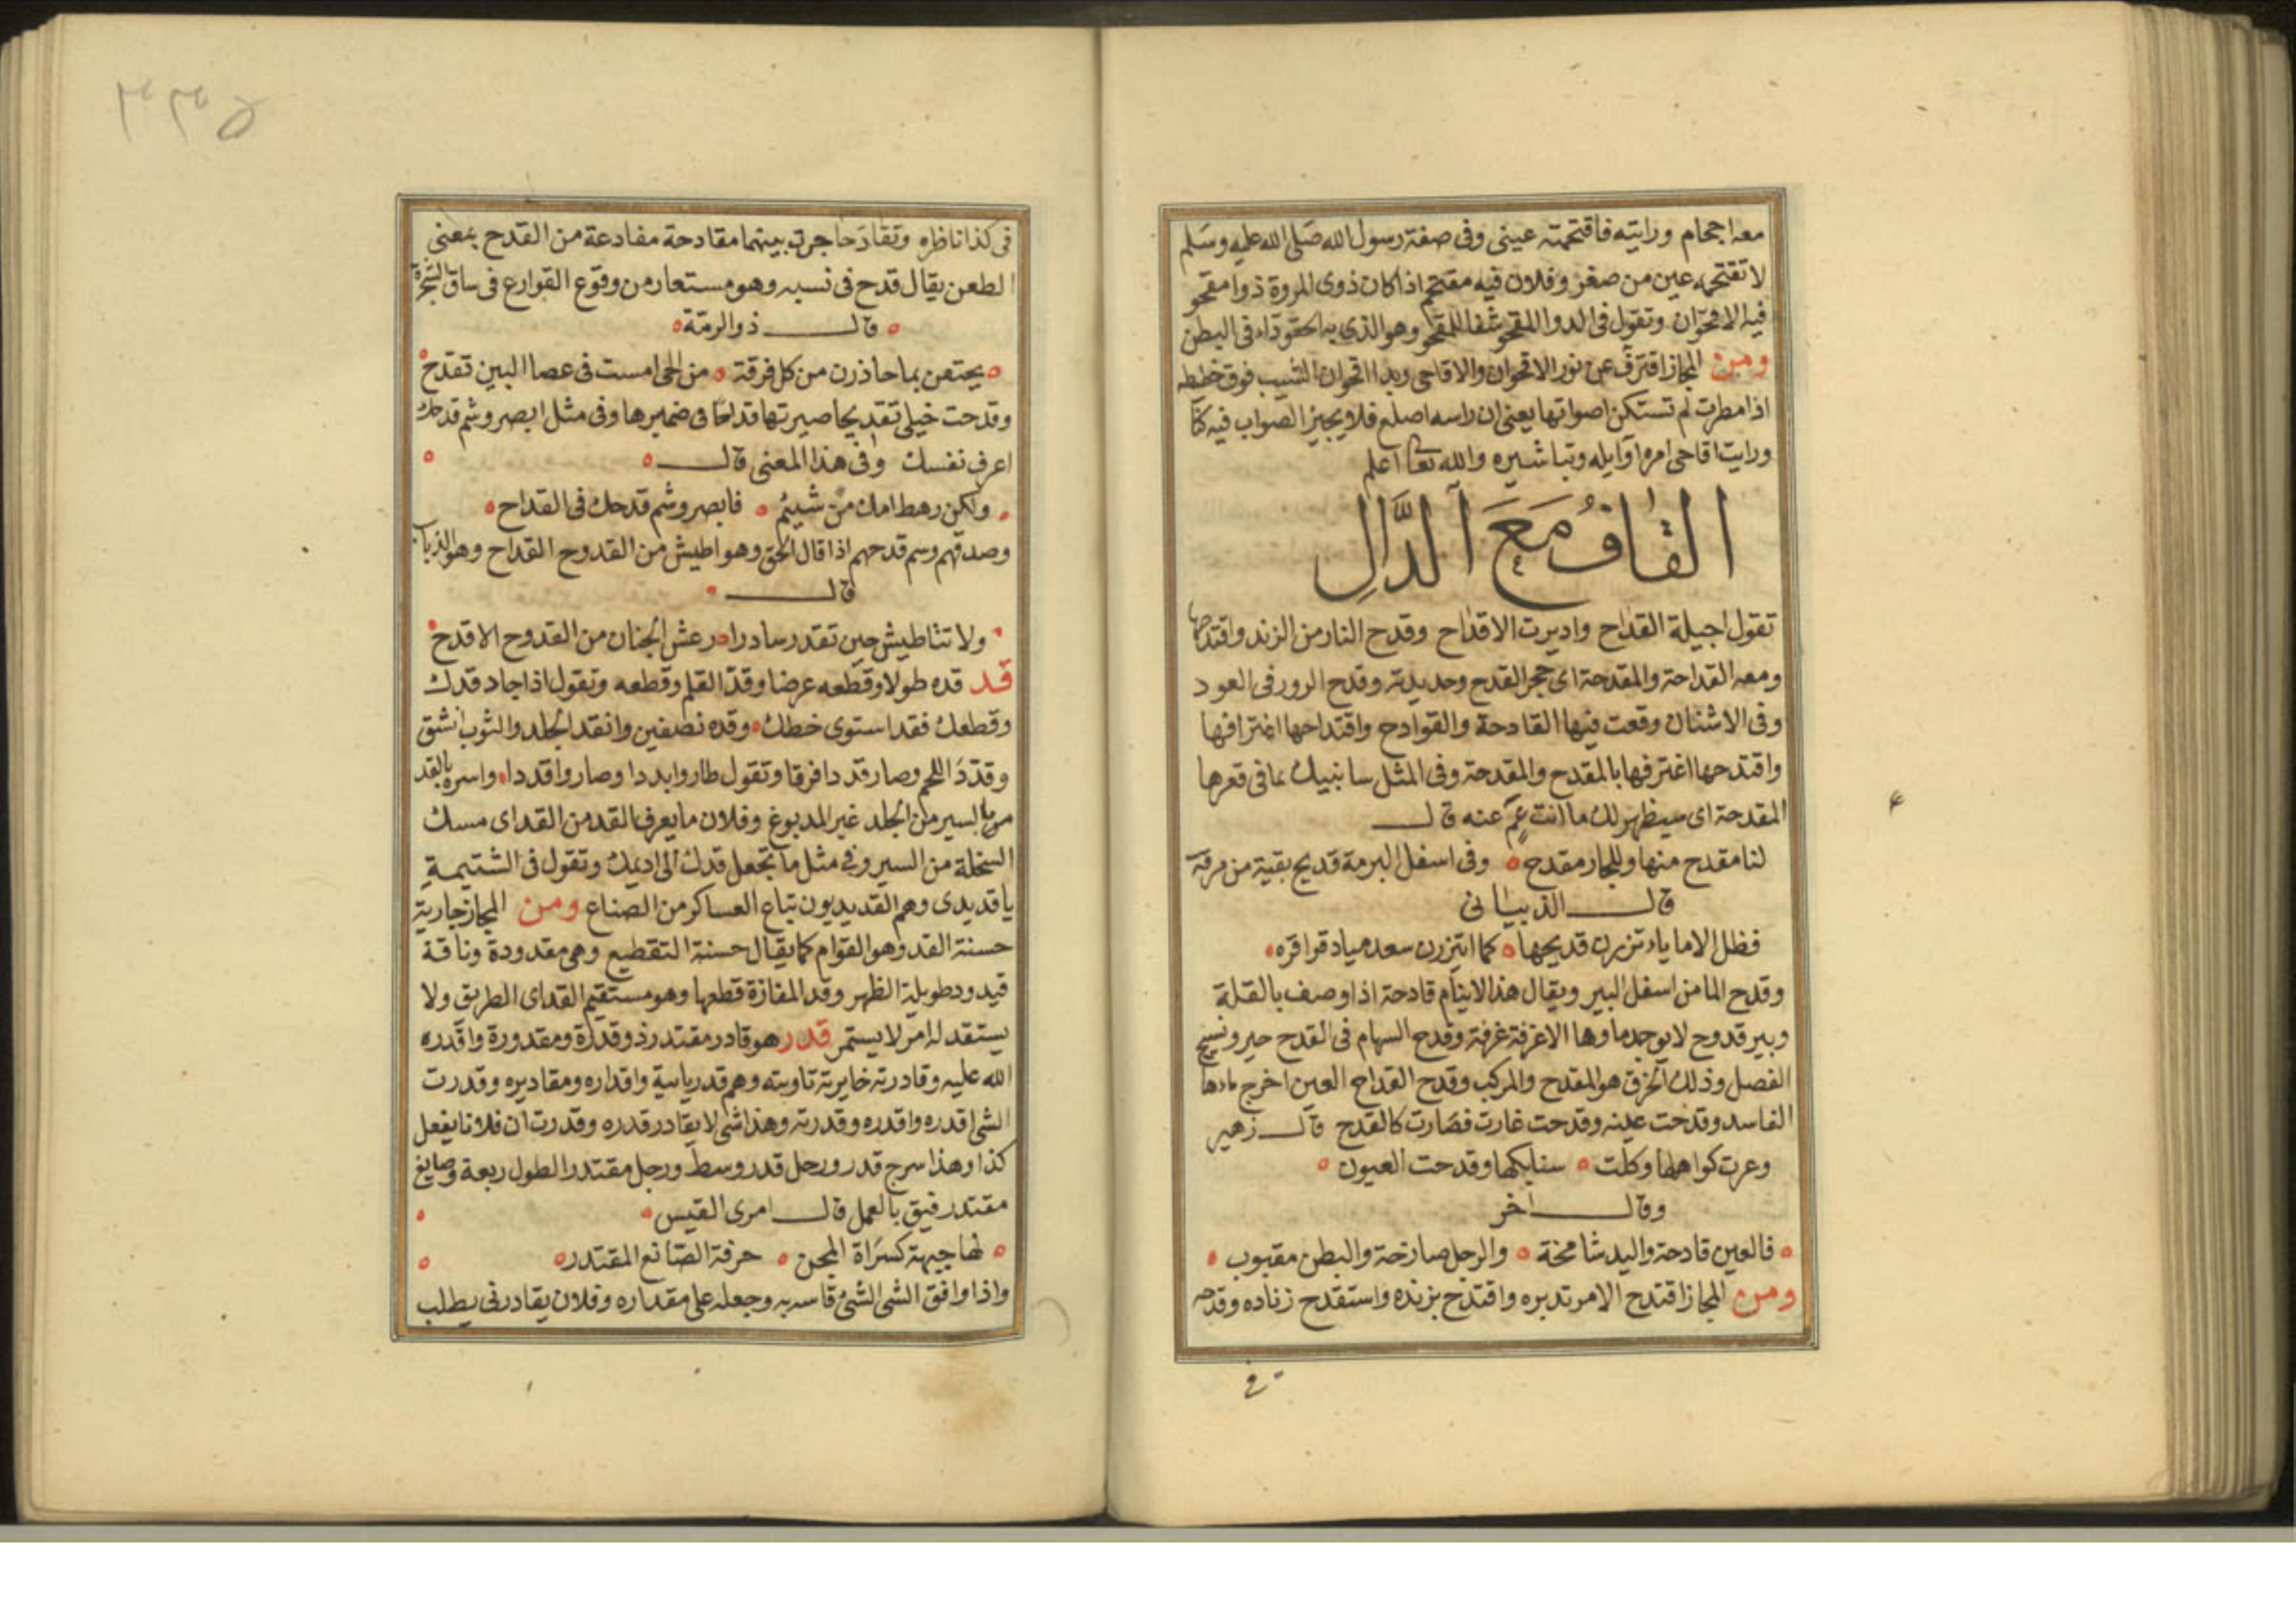 معه اجحام ورايته فاقتحمته عيني وفي صفة رسول الله صلى الله عليه وسلم
لا تقتحمه عين من صغر وفلان فيه مقتحم اذا كان ذوى المروة ذوا مقحو
فيه الاقحوان وتقول في الدوا المقحو شفا للمقحو وهو الذي به الحقو داء في البطن
ومن المجاز افترّ عن نور الاقحوان والاقاحى وبدا اقحوان الشيب فوق خططه
اذا مطرت لم تستكن اصواتها يعنى ان راسه اصلع فلا يجيز الصواب فيه كنا
ورايت اقاحى امره اوايله وتباشيره والله تعا اعلم
القاف مع الدال
تقول اجيلة القداح واديرت الاقداح وقدح النار من الزند واقتدحها
ومعه القداحة والمقدحة اى حجر القدح وحديدته وقدح الرور في العود
وفي الاسنان وقعت فيها القادحة والقوادح واقتداحها اغترافها
واقتدحها اغترفها بالمقدح والمقدحة وفي المثل سانبيك بما في قعرها
المقدحة اى سيظهر لك ما انت عم عنه قال
لنا مقدح منها وللجار مقدح وفي اسفل البرمة قديح بقية من مرقة
قال الذبيانى
فظل الاماياء تزبرن قديحها كما ابتزرن سعد مياد قراقره
وقدح الما من اسفل البير ويقال هذا الاينام قادحة اذا وصف بالقلة
وبير قدوح لا يوجد ماوها الا غرفة غرفة وقدح السهام في القدح حير ونسيج
الفصل وذلك الخرق هو المقدح والمركب وقدح القداح العين اخرج ماءها
الفاسد وقدحت عينه وقدحت غارت فصارت كالقدح قال زهير
وعرت كواهلها وكلت سنابكها وقدحت العيون
وقال اخر
فالعين قادحة واليد شامخة والرجل صارخة والبطن مقبوب
ومن المجاز اقتدح الامر تدبره واقتدح بزنده واستقدح زناده وقدحه
في
٣٣٥
في كذا ناظره وتقادحا جرت بينهما مقادحة مفادعة من القدح بمعنى
الطعن يقال قدح في نسبه وهو مستعار من وقوع القوارع في ساق الشجرة
قال ذو الرمة
يحتفن بما حاذرن من كل فرقة من الحى امست في عصا البين تقدح
وقدحت خيلى تقديحا صيرتها قداحا في ضميرها وفي مثل ابصر وشم قدحك
اعرف نفسك وفي هذا المعنى قال
ولكن رهط امك من شييم فابصر وشم قدحك في القداح
وصدقهم وسم قدحهم اذا قال الحق وهو اطيش من القدوح القداح وهو الذباب
قال
ولا تتاطيش حين تقدر سادرا رعش الجنان من القدوح الاقدح
قد قده طولا وقطعه عرضا وقدّ القلم وقطعه وتقول اذا جاد قدك
وقطعك فقد استوى خطك وقده نصفين وانقد الجلد والثوب انشق
وقدّد اللحم وصار قددا فرقا وتقول طاروا بددا وصاروا قددا واسره بالقد
بالسير من الجلد غير المدبوغ وفلان ما يعرف القد من القد اى مسك
السخلة من السير وفي مثل ما تجعل قدك الى اديمك وتقول في الشتيمة
يا قديدى وهم القديديون تباع العساكر من الصناع ومن المجاز جارية
حسنة القد وهو القوام كما يقال حسنة التقطيع وهى مقدودة وناقة
قيدود طويلة الظهر وقد المفازة قطعها وهو مستقيم القد اى الطريق ولا
يستقد له امر لا يستمر قدر هو قادر مقتدر ذو قدرة ومقدورة واقدره
الله عليه وقادرته خايرته تاويته وهم قدر ياسة واقداره ومقاديره وقدرت
الشى اقدره واقدره وقدرته وهذا شى لا يقادر قدره وقدرت ان فلانا يفعل
كذا وهذا سرج قدر ورحل قدر وسط ورجل مقتدر الطول ربعة وصايغ
مقتدر رفيق بالعمل قال امرى القيس
لها جبهة كسراة المجن حرفة الصانع المقتدر
واذا وافق الشى الشئ قاسه به وجعله على مقداره وفلان يقادرنى يطلب